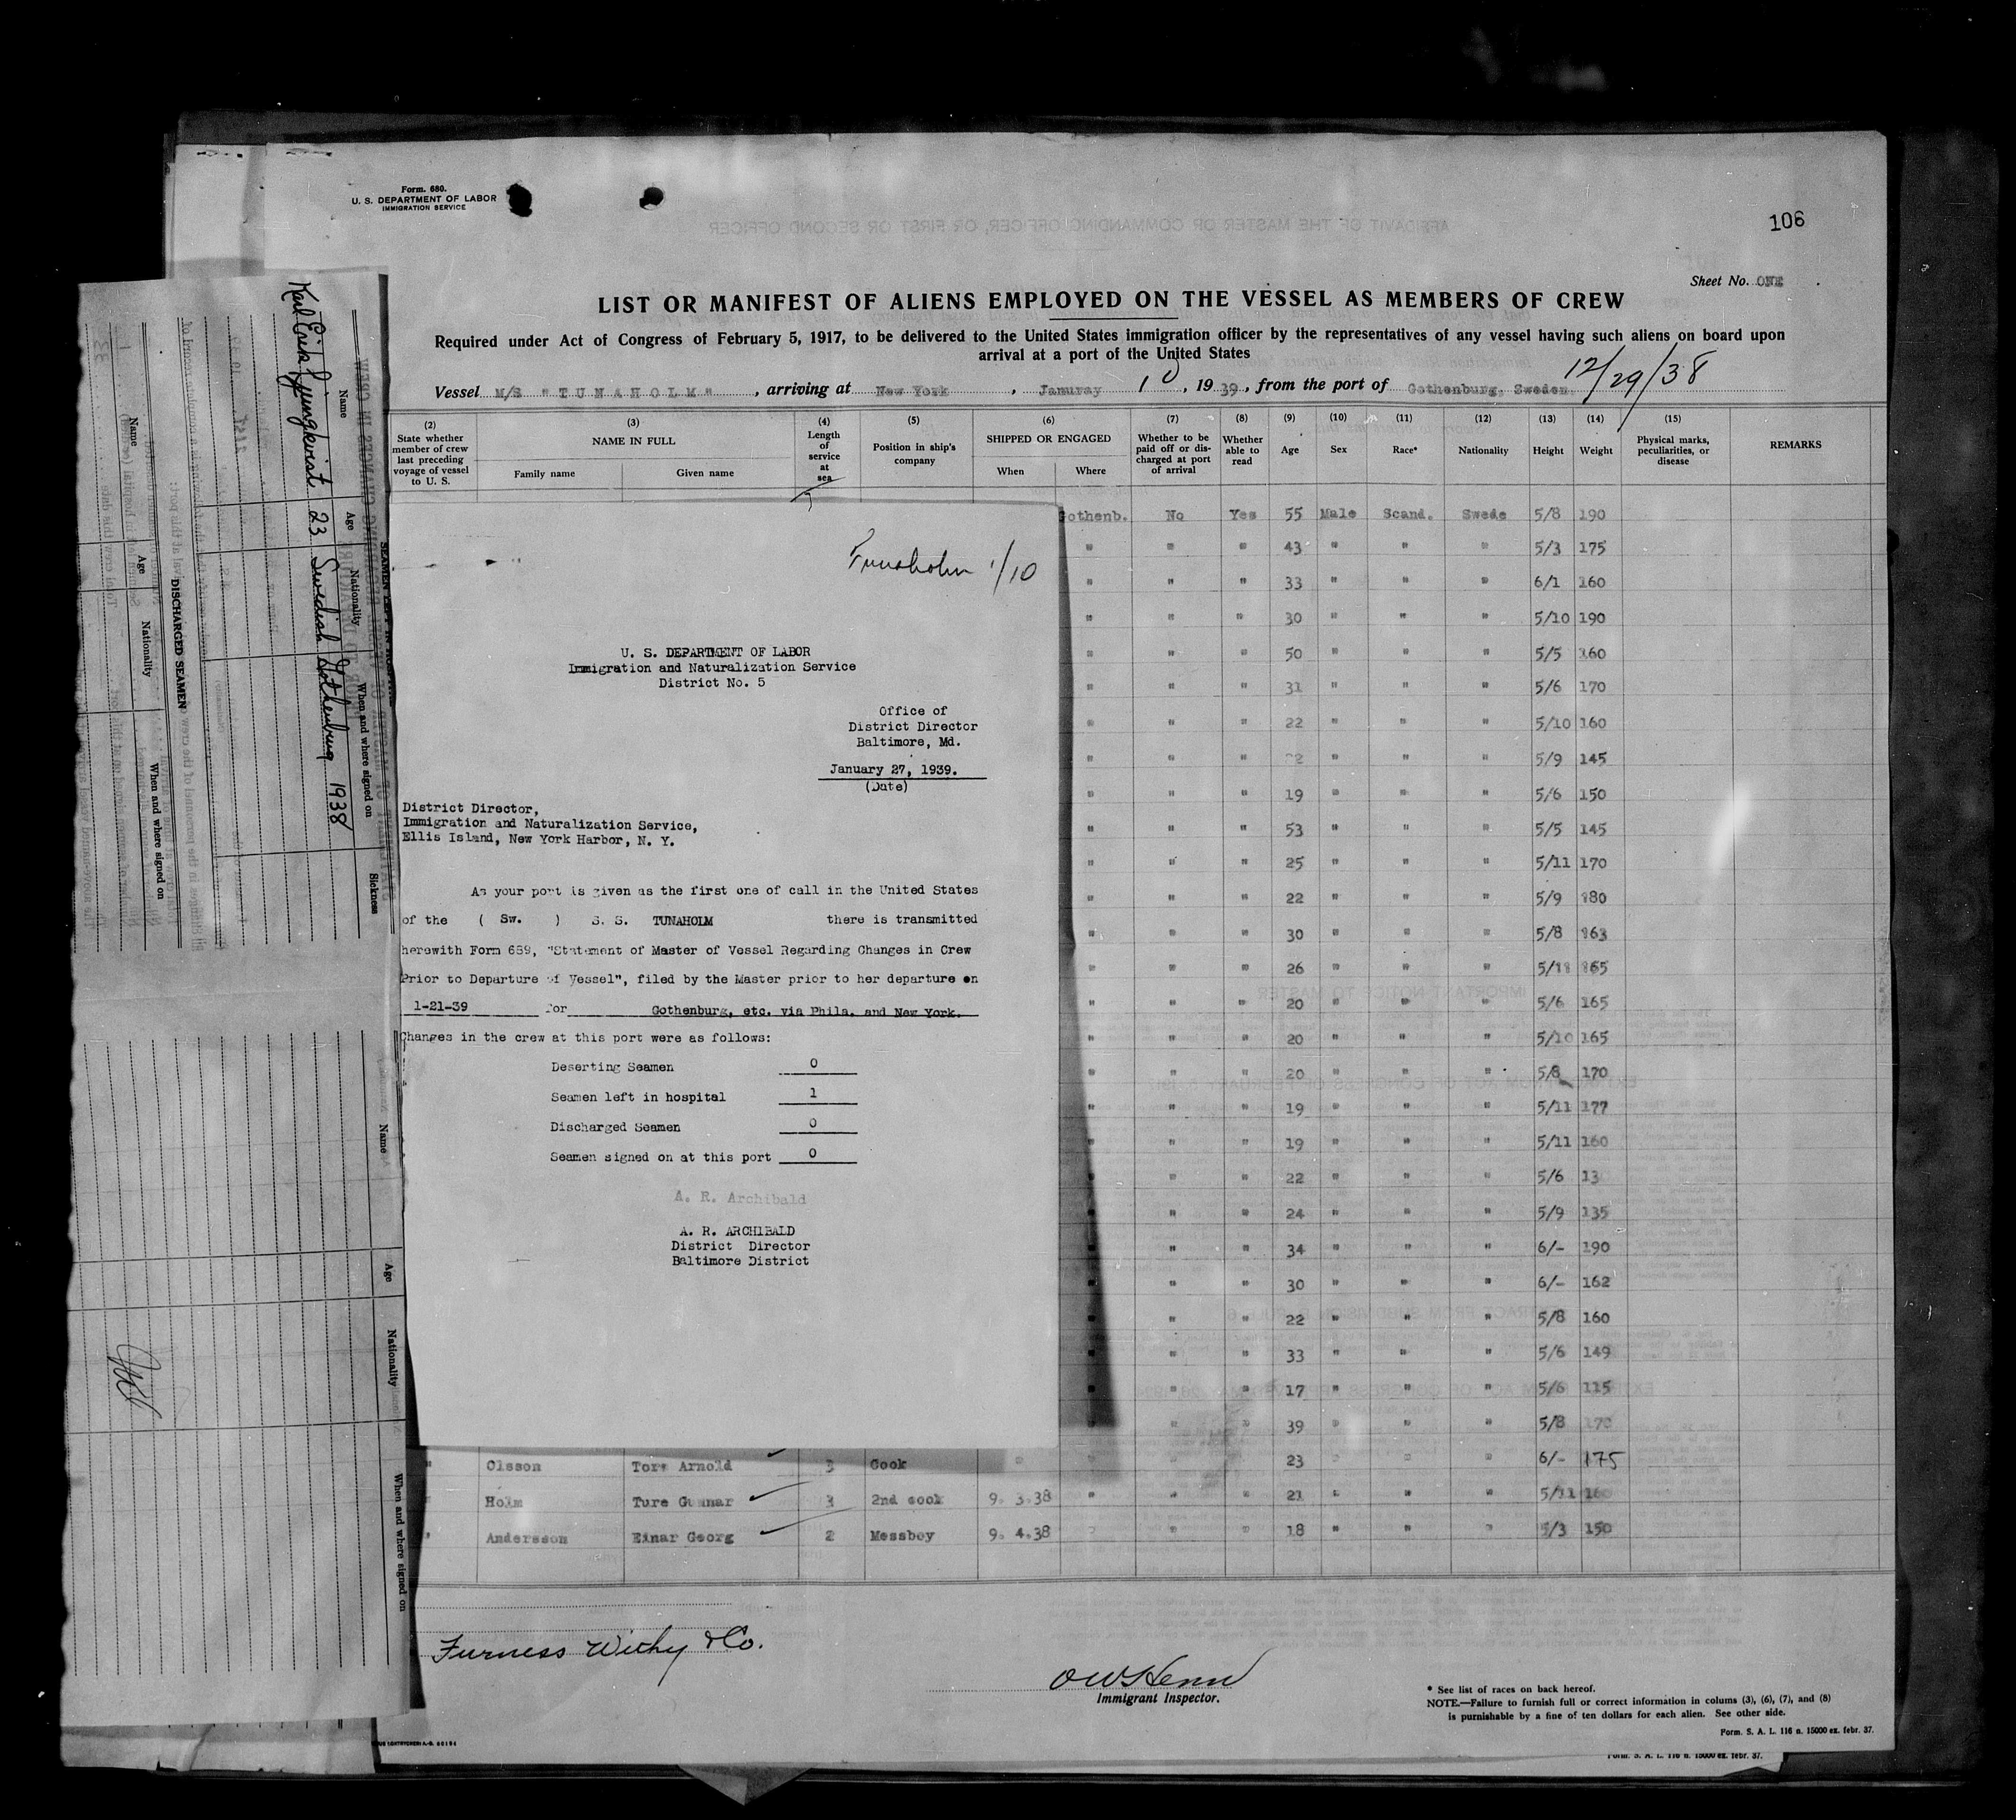 Form. 680.
U. S. DEPARTMENT OF LABOR
IMMIGRATION SERVICE
106
Sheet No. ONE
LIST OR MANIFEST OF ALIENS EMPLOYED ON THE VESSEL AS MEMBERS OF CREW
Required under Act of Congress of February 5, 1917, to be delivered to the United States immigration officer by the representatives of any vessel having such aliens on board upon
arrival at a port of the United States
12/29/38
Vessel M/S "TUNAHOLM", arriving at New York, Januray 10, 1939, from the port of Gothenburg, Sweden
(2) State whether member of crew last preceding voyage of vessel to U. S.
(3) NAME IN FULL
Family name
Given name
(4) Length of service at sea
(5) Position in ship's company
(6) SHIPPED OR ENGAGED
When
Where
(7) Whether to be paid off or discharged at port of arrival
(8) Whether able to read
(9) Age
(10) Sex
(11) Race*
(12) Nationality
(13) Height
(14) Weight
(15) Physical marks, peculiarities, or disease
REMARKS
Gothenb. No Yes 55 Male Scand. Swede 5/8 190
" " " 43 " " " 5/3 175
" " " 33 " " " 6/1 160
" " " 30 " " " 5/10 190
" " " 50 " " " 5/5 160
" " " 31 " " " 5/6 170
" " " 22 " " " 5/10 160
" " " " " " 5/9 145
" " " 19 " " " 5/6 150
" " " 53 " " " 5/5 145
" " " 25 " " " 5/11 170
" " " 22 " " " 5/9 180
" " " 30 " " " 5/8 163
" " " 26 " " " 165
" " " 20 " " " 5/6 165
" " " 20 " " " 5/10 165
" " " 20 " " " 5/8 170
" " " 19 " " " 5/11 177
" " " 19 " " " 5/11 160
" " " 22 " " " 5/6
" " " 24 " " " 5/9 135
" " " 34 " " " 6/- 190
" " " 30 " " " 6/- 162
" " " 22 " " " 5/8 160
" " " 33 " " " 5/6 149
" " " 17 " " " 5/6 115
" " " 39 " " " 5/8 170
" Olsson Tore Arnold 3 Cook " " " 23 " " " 6/- 175
" Holm Ture Gunnar 3 2nd cook 9. 3.38 " " " 21 " " " 5/11 160
" Andersson Einar Georg 2 Messboy 9. 4.38 " " " 18 " " " 5/3 150
Furness Withy & Co.
Immigrant Inspector.
* See list of races on back hereof.
NOTE.—Failure to furnish full or correct information in colums (3), (6), (7), and (8)
is punishable by a fine of ten dollars for each alien. See other side.
Form. S. A. L. 116 a. 15000 ex. febr. 37.
Form. S. A. L. 116 a. 15000 ex. febr. 37.
Tunaholm 1/10
U. S. DEPARTMENT OF LABOR
Immigration and Naturalization Service
District No. 5
Office of
District Director
Baltimore, Md.
January 27, 1939.
(Date)
District Director,
Immigration and Naturalization Service,
Ellis Island, New York Harbor, N. Y.
As your port is given as the first one of call in the United States
of the ( Sw. ) S. S. TUNAHOLM there is transmitted
herewith Form 689, "Statement of Master of Vessel Regarding Changes in Crew
Prior to Departure of Vessel", filed by the Master prior to her departure on
1-21-39 for Gothenburg, etc. via Phila. and New York.
Changes in the crew at this port were as follows:
Deserting Seamen 0
Seamen left in hospital 1
Discharged Seamen 0
Seamen signed on at this port 0
A. R. Archibald
A. R. ARCHIBALD
District Director
Baltimore District
Name Age Nationality When and where signed on Sickness
Karl Erik Ljungkvist 23 Swedish Gothenburg 1938
DISCHARGED SEAMEN
Name Age Nationality When and where signed on
Name Age Nationality When and where signed on